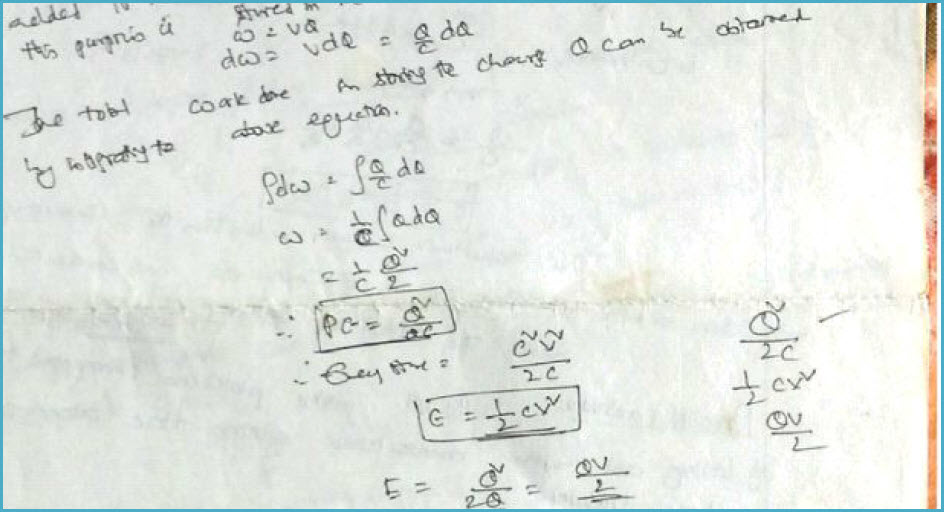 added
this purpose is stored in
ω = VQ
dω = VdQ = Q/C dQ
The total work done in storing the charge Q can be obtained
by integrating the above equation.
∫dω = ∫Q/C dQ
ω = 1/C ∫QdQ
= 1/C Q²/2
∴ PE = Q²/2C
∴ Energy store = C²V²/2C
E = 1/2 CV²
E = Q²/2Q = QV/2
Q²/2C
1/2 CV²
QV/2